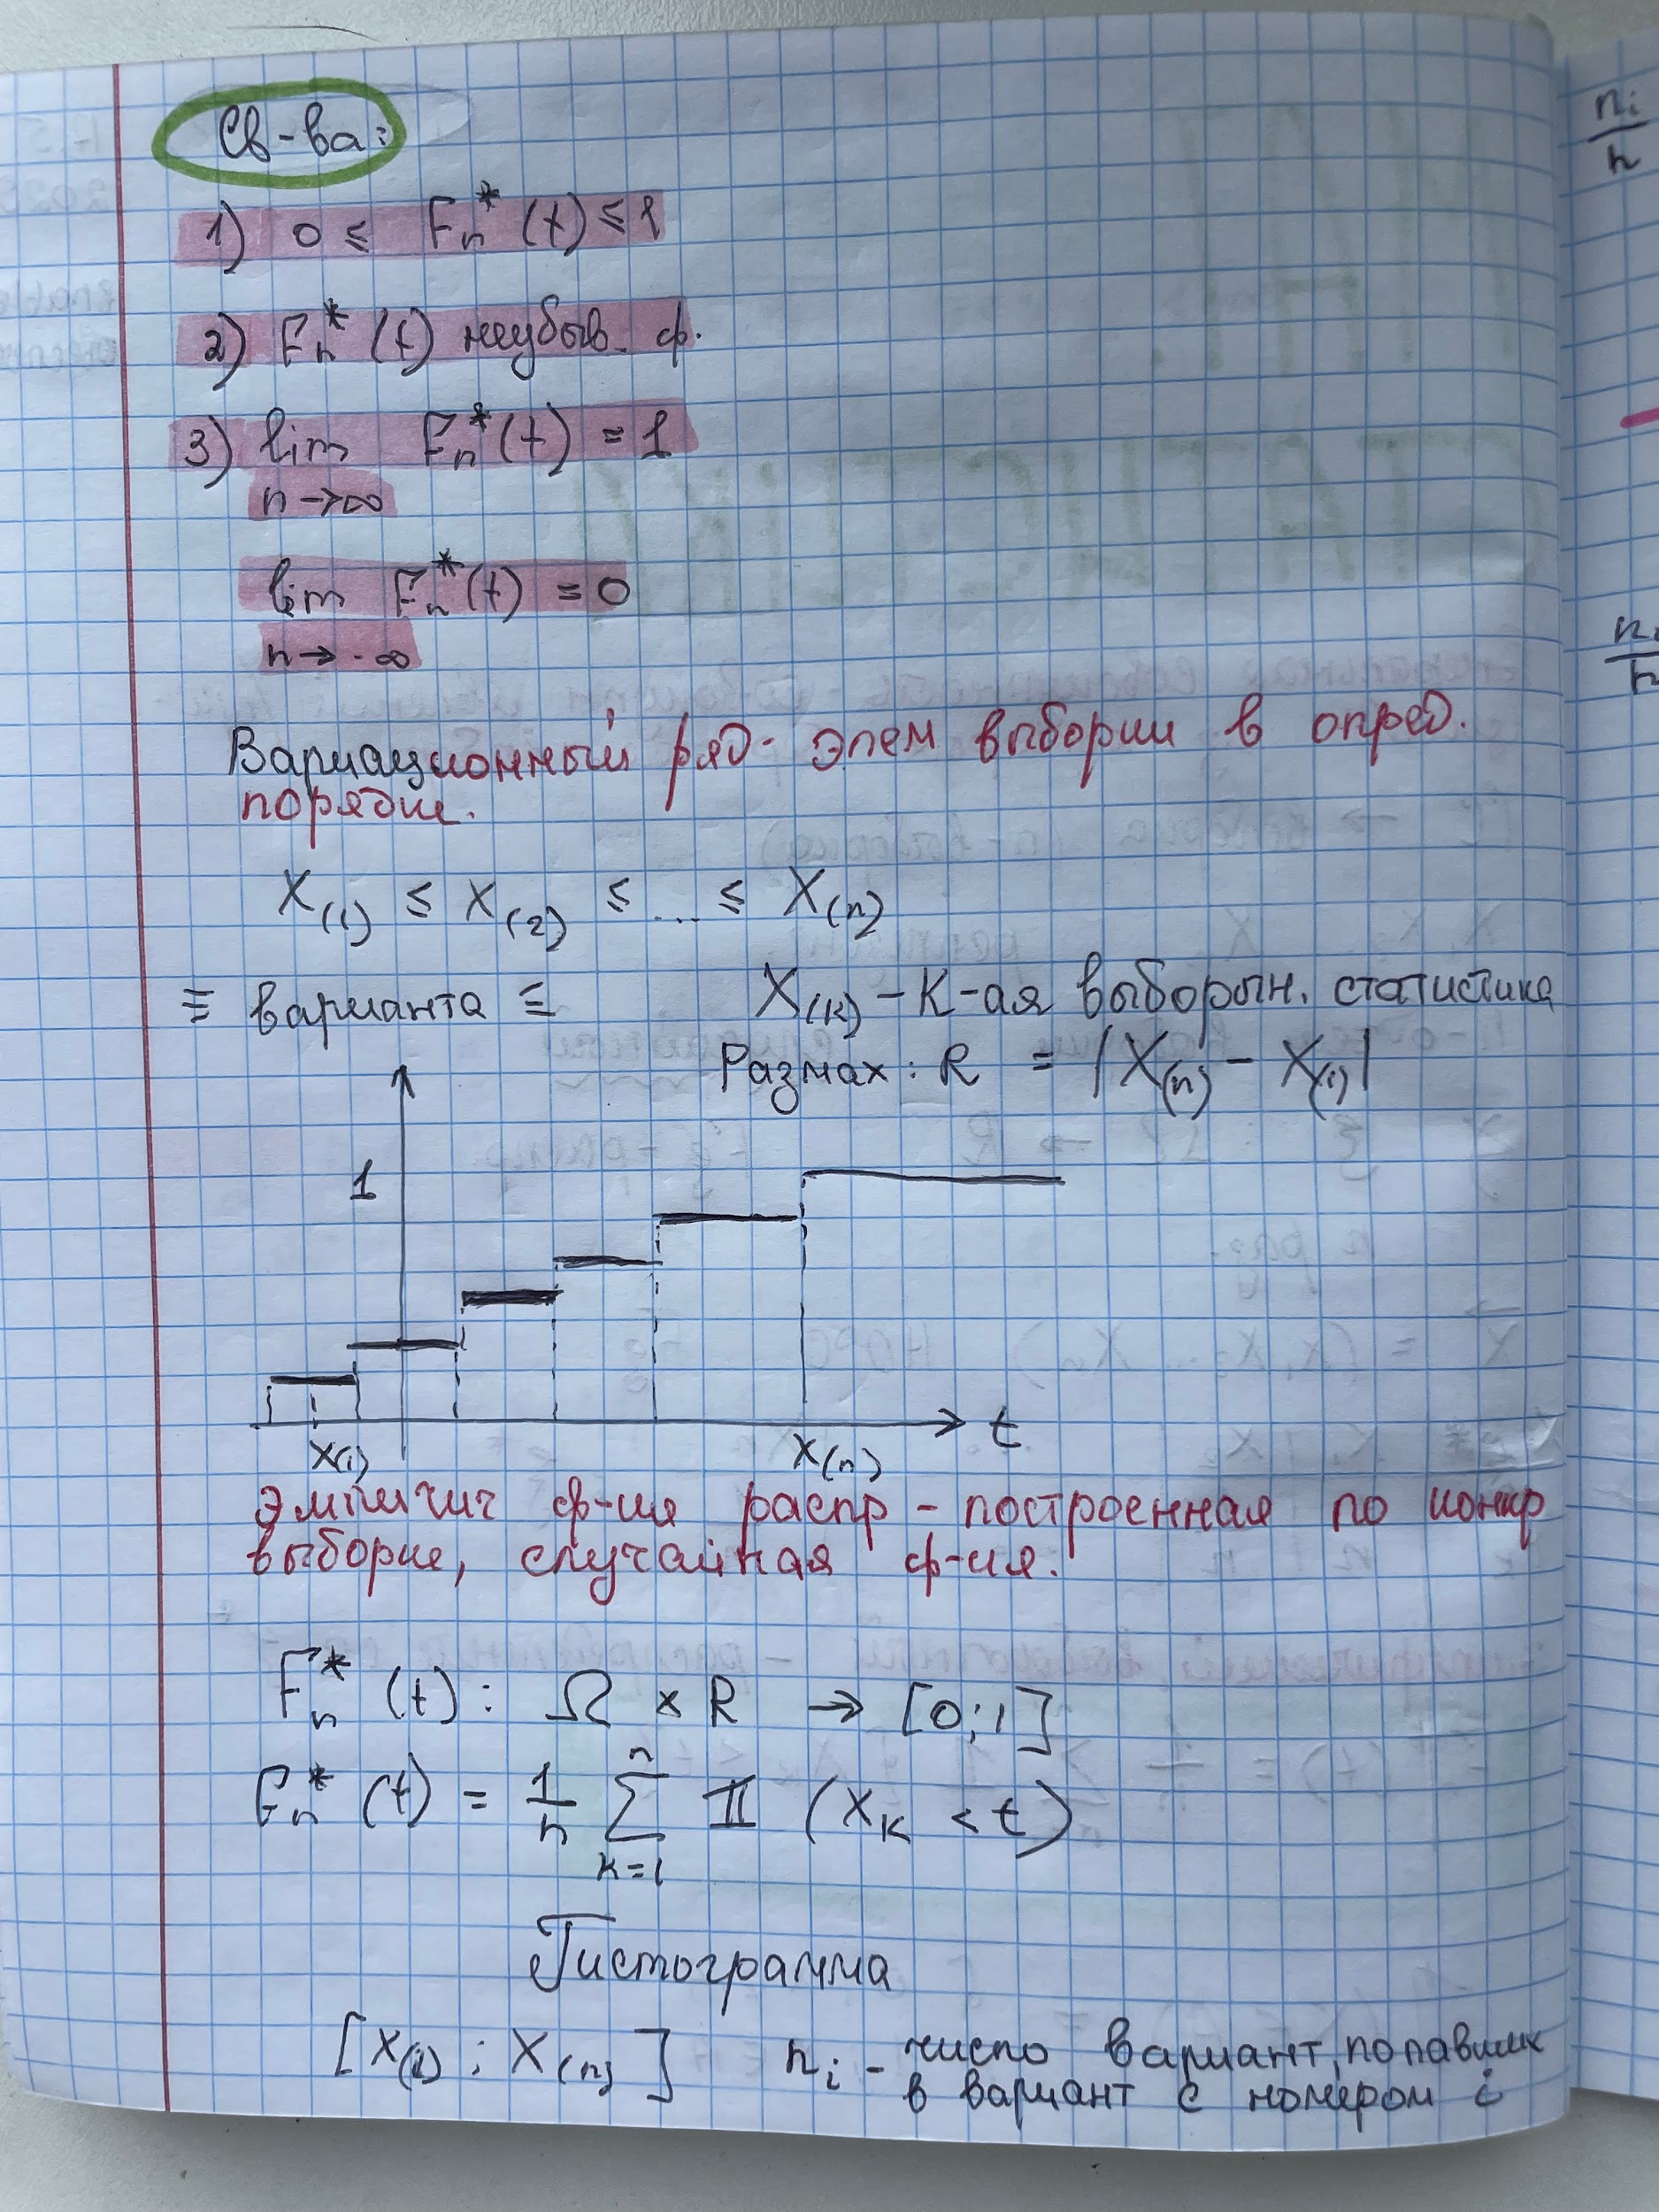 Св-ва:
1) 0 ≤ Fn*(t) ≤ 1
2) Fn*(t) неубыв. ф.
3) lim Fn*(t) = 1
n→∞
lim Fn*(t) = 0
n→-∞
Вариационный ряд - элем выборки в опред.
порядке.
X(1) ≤ X(2) ≤ ... ≤ X(n)
≡ варианта ≡ X(k) - К-ая выборочн. статистика
Размах: R = |X(n) - X(1)|
1
t
X(1) X(n)
эмпирич ф-ия распр - построенная по конкр
выборке, случайная ф-ия.
Fn*(t): Ω × R → [0;1]
Fn*(t) = 1/n ∑ k=1 n 𝕀 (Xk < t)
Гистограмма
[X(1); X(n)] ni - число вариант, попавших
в вариант с номером i
ni/n